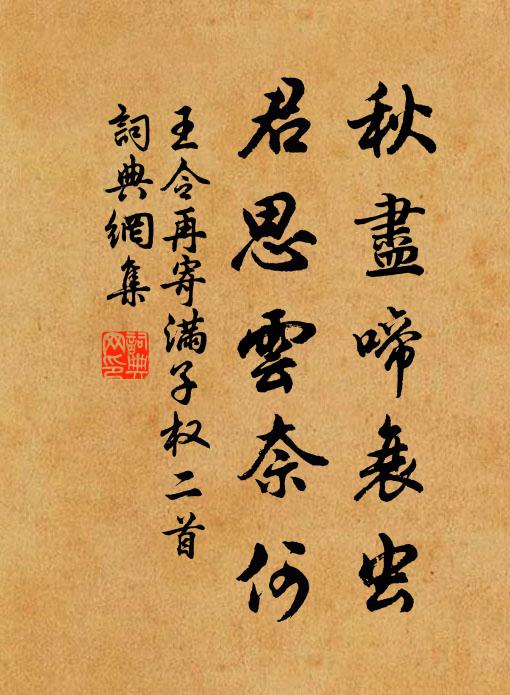 秋盡啼衰虫
君思雲奈何
王令再寄滿子权二首
詞典網集
詞典
网印